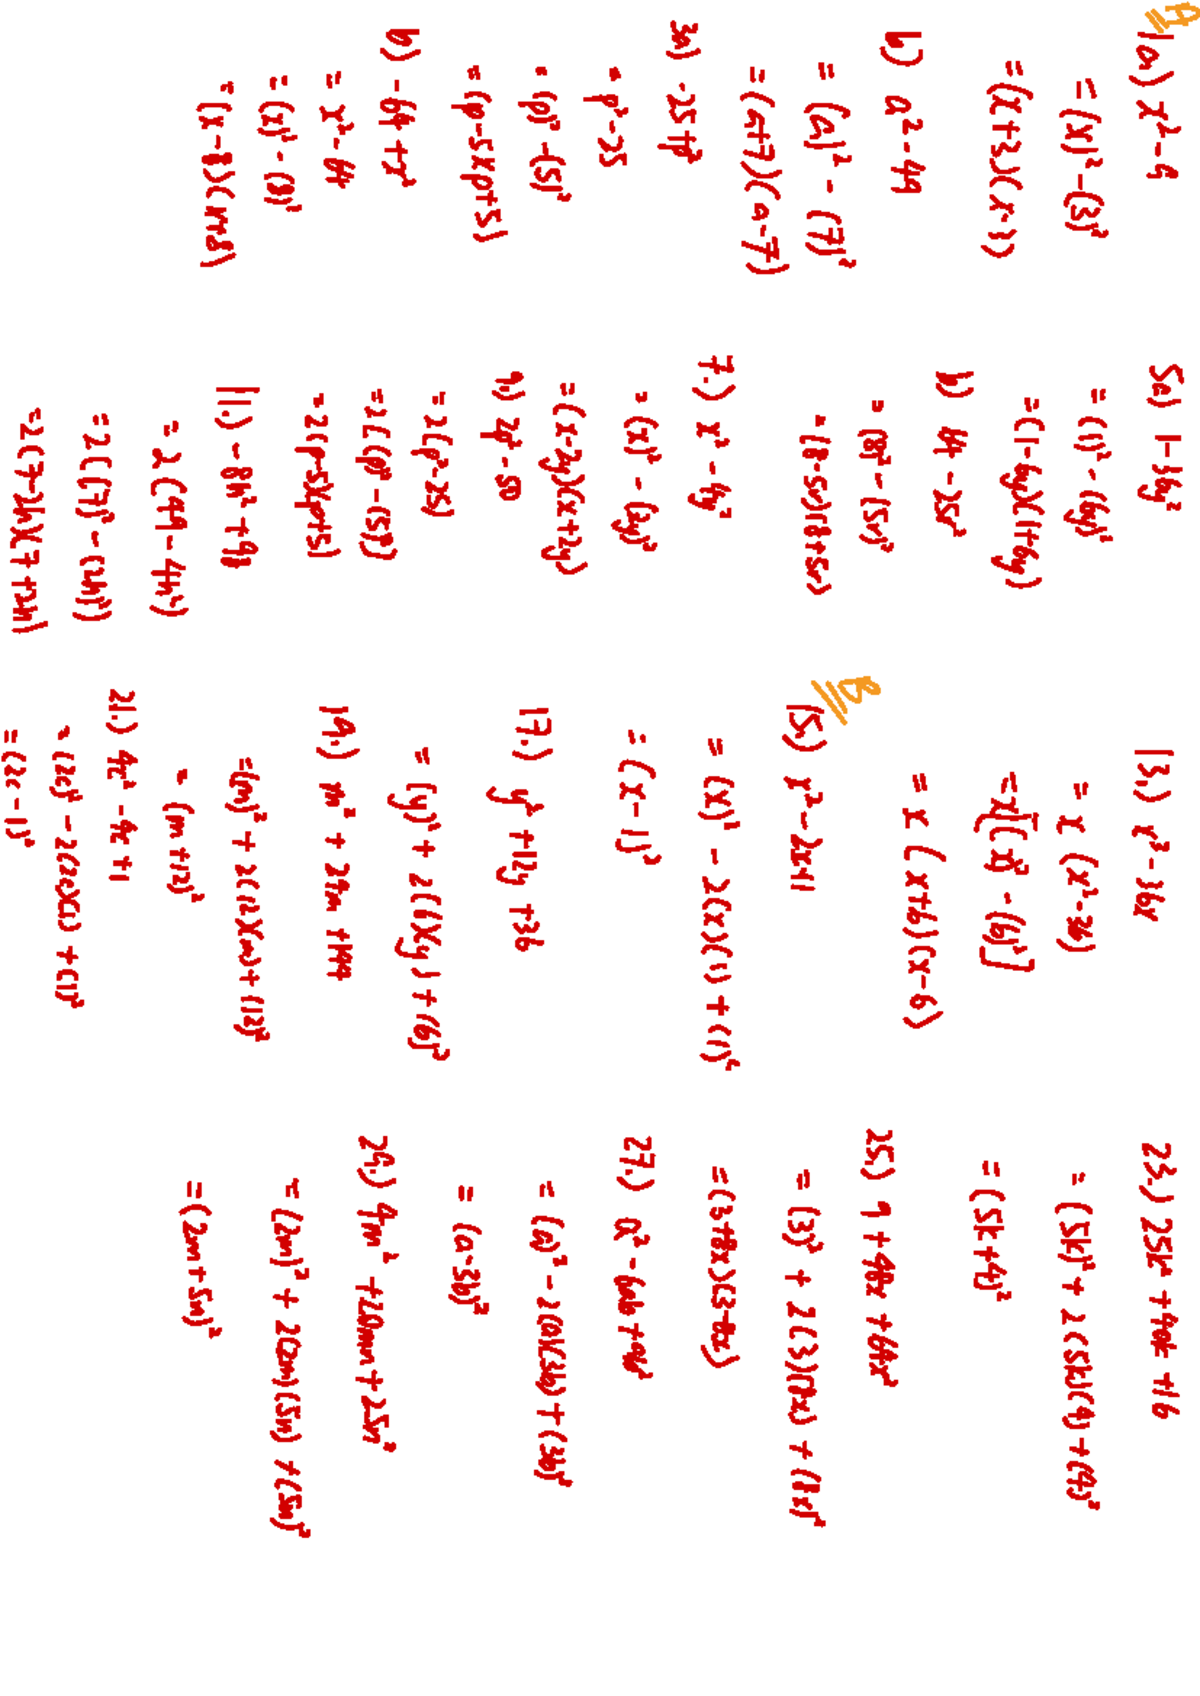 A
1a) x²-9
= (x)²-(3)²
= (x+3)(x-3)
b) a²-49
= (a)² - (7)²
= (a+7)(a-7)
3a) -25+p²
= p²-25
= (p)²-(5)²
= (p-5)(p+5)
b) - 64 + x²
= x²- 64
= (x)² - (8)²
= (x-8)(x+8)
5a) 1-36y²
= (1)² - (6y)²
= (1-6y)(1+6y)
b) 64 - 25r²
= (8)² - (5r)²
= (8-5r)(8+5r)
7.) x² - 4y²
= (x)² - (2y)²
= (x-2y)(x+2y)
9.) 2p² - 50
= 2(p²-25)
= 2((p)² - (5)²)
= 2(p-5)(p+5)
11.) - 8h² + 98
= 2(49-4h²)
= 2((7)² - (2h)²)
= 2(7-2h)(7+2h)
13.) x³-36x
= x (x²-36)
= x[(x)² - (6)²]
= x (x+6)(x-6)
B
15.) x²-2x+1
= (x)² - 2(x)(1) + (1)²
= (x-1)²
17.) y² +12y +36
= (y)² + 2(6)(y) + (6)²
19.) m² + 24m +144
= (m)² + 2(12)(m) + (12)²
= (m+12)²
21.) 4c² - 4c +1
= (2c)² - 2(2c)(1) + (1)²
= (2c-1)²
23.) 25k² + 40k +16
= (5k)² + 2(5k)(4) + (4)²
= (5k+4)²
25.) 9 + 48x + 64x²
= (3)² + 2(3)(8x) + (8x)²
= (3+8x)(3-8x)
27.) a² - 6ab + 9b²
= (a)² - 2(a)(3b) + (3b)²
= (a-3b)²
29.) 4m² + 20mn + 25n²
= (2m)² + 2(2m)(5n) + (5n)²
= (2m+5n)²